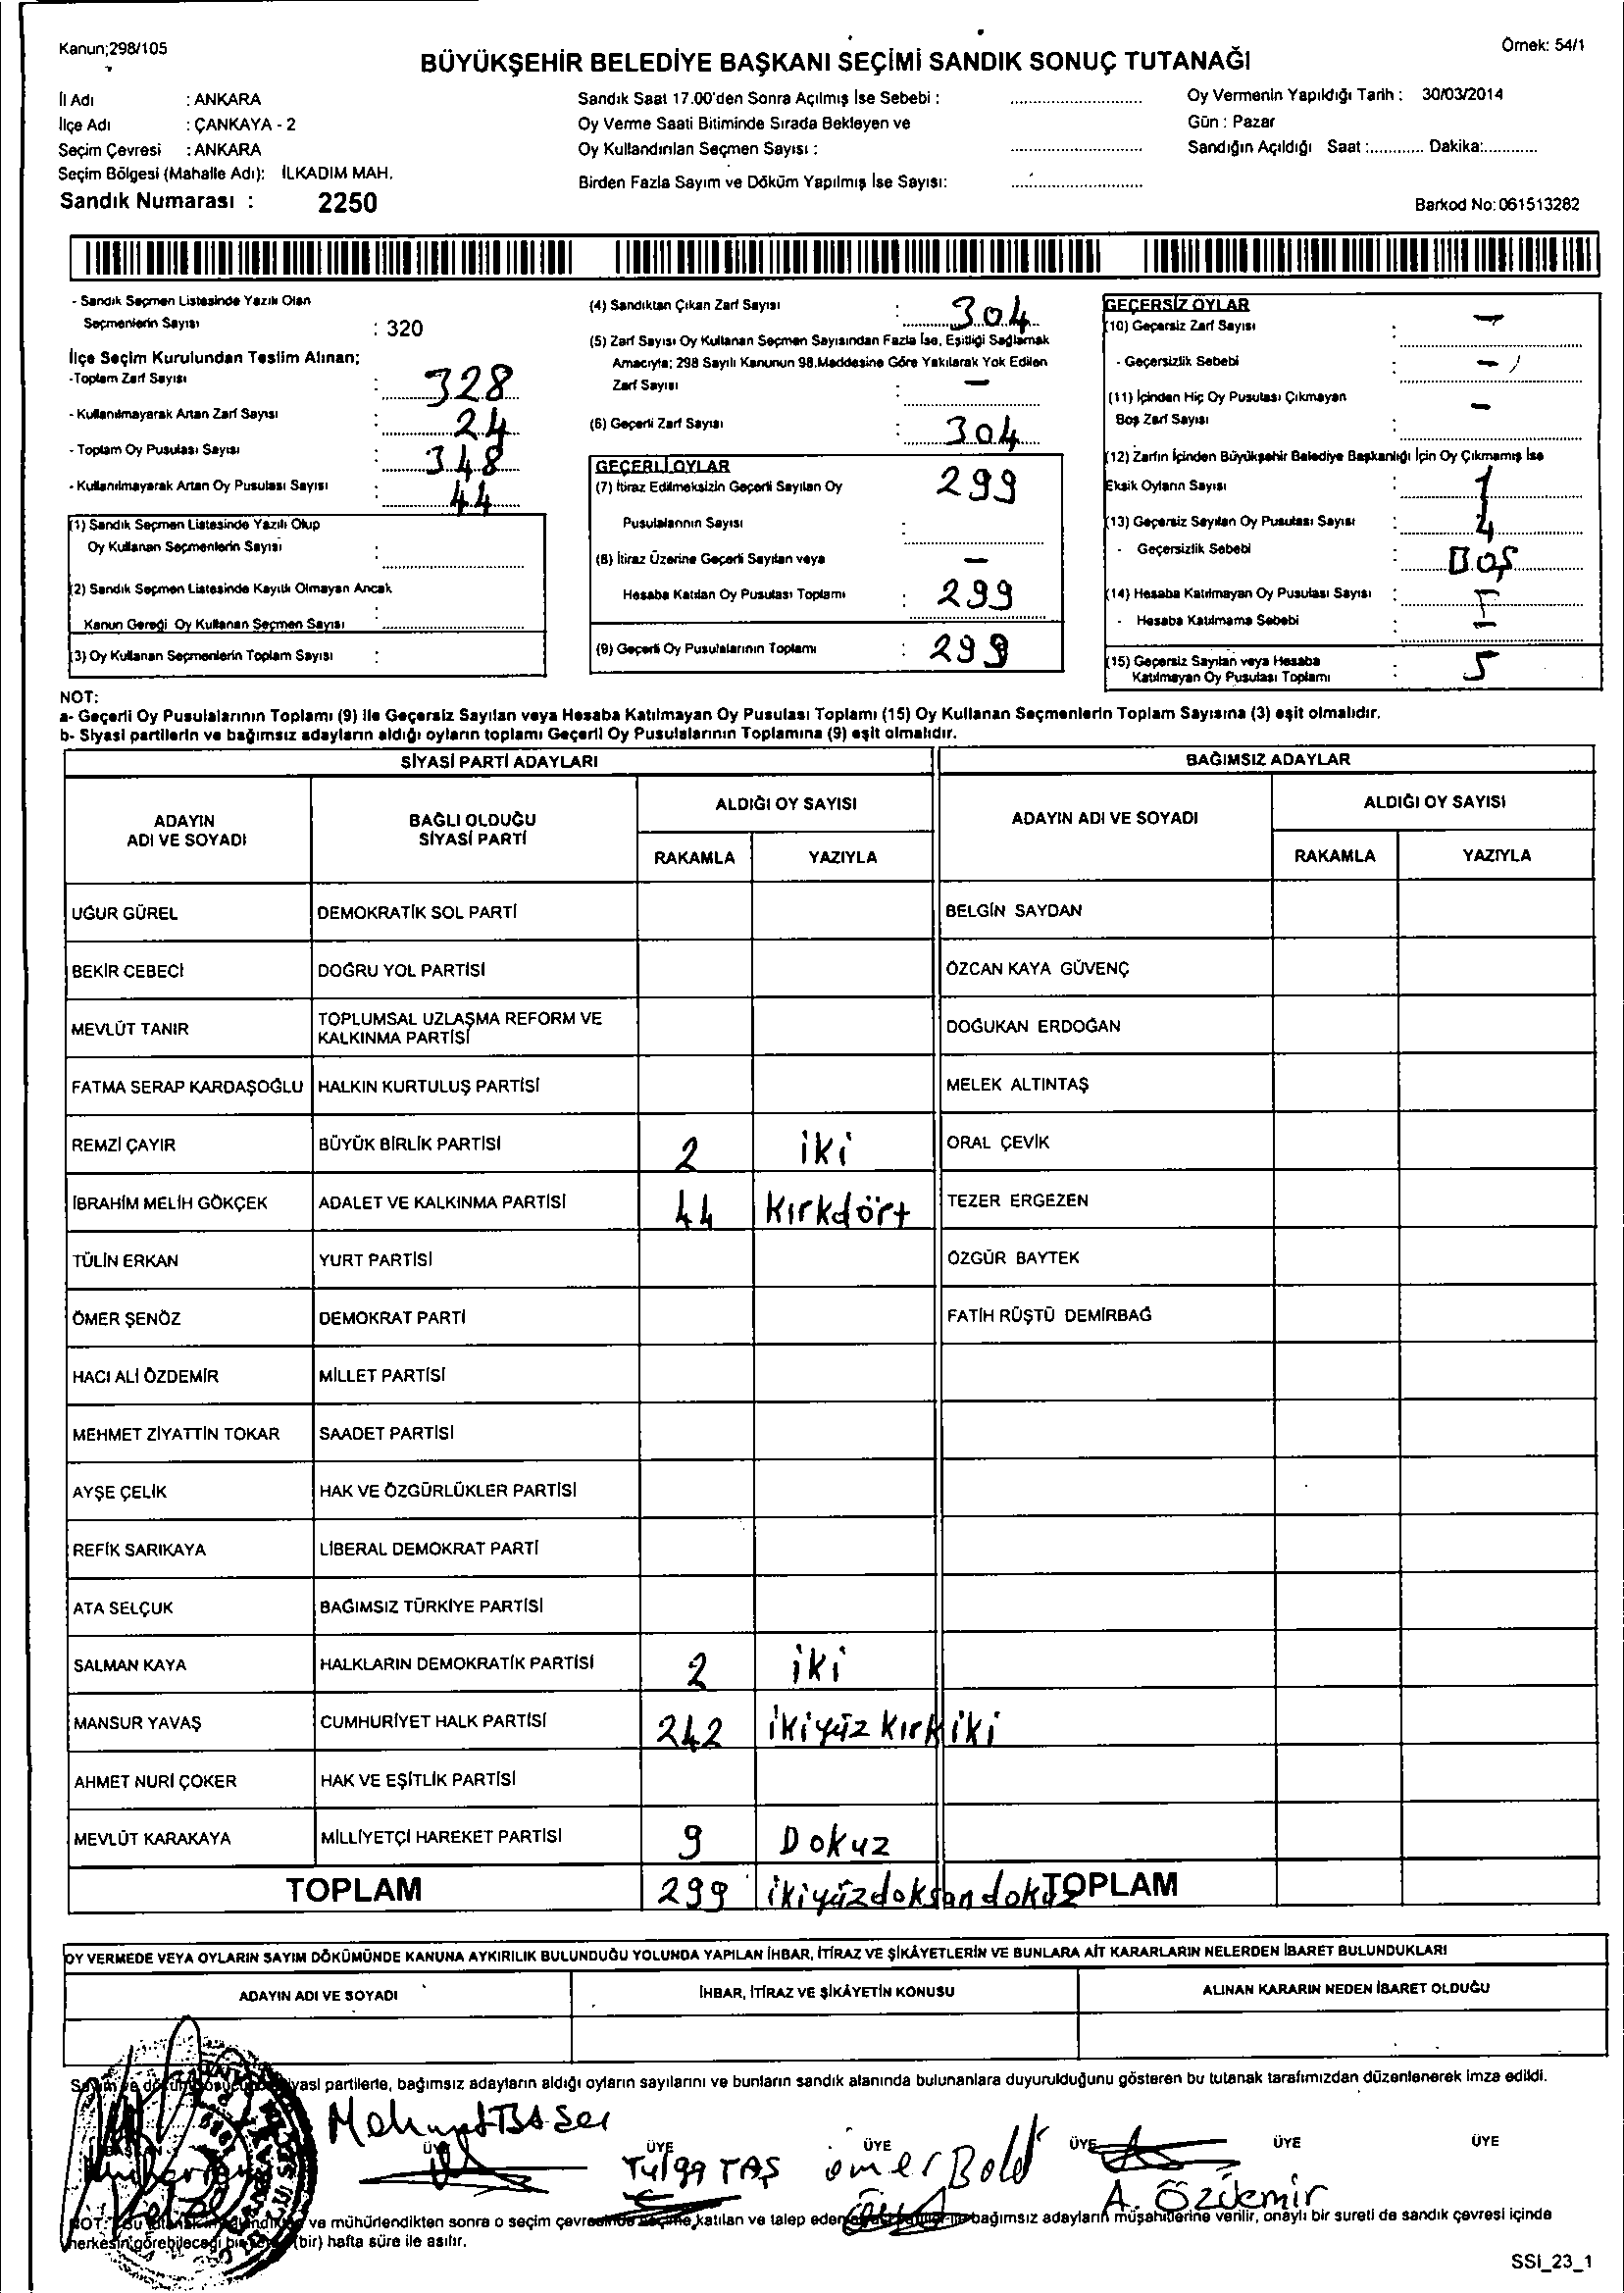 Kanun;298/105
Örnek: 54/1
BÜYÜKŞEHİR BELEDİYE BAŞKANI SEÇİMİ SANDIK SONUÇ TUTANAĞI
İl Adı : ANKARA
İlçe Adı : ÇANKAYA - 2
Seçim Çevresi : ANKARA
Seçim Bölgesi (Mahalle Adı): İLKADIM MAH.
Sandık Numarası : 2250
Sandık Saat 17.00'den Sonra Açılmış İse Sebebi :
Oy Verme Saati Bitiminde Sırada Bekleyen ve
Oy Kullandırılan Seçmen Sayısı :
Birden Fazla Sayım ve Döküm Yapılmış İse Sayısı:
Oy Vermenin Yapıldığı Tarih : 30/03/2014
Gün : Pazar
Sandığın Açıldığı Saat :............ Dakika:............
Barkod No: 061513282
- Sandık Seçmen Listesinde Yazılı Olan
Seçmenlerin Sayısı : 320
İlçe Seçim Kurulundan Teslim Alınan;
-Toplam Zarf Sayısı : 328
- Kullanılmayarak Artan Zarf Sayısı : 24
- Toplam Oy Pusulası Sayısı : 348
- Kullanılmayarak Artan Oy Pusulası Sayısı : 44
(1) Sandık Seçmen Listesinde Yazılı Olup
Oy Kullanan Seçmenlerin Sayısı :
(2) Sandık Seçmen Listesinde Kayıtlı Olmayan Ancak
Kanun Gereği Oy Kullanan Seçmen Sayısı :
(3) Oy Kullanan Seçmenlerin Toplam Sayısı :
(4) Sandıktan Çıkan Zarf Sayısı : 304
(5) Zarf Sayısı Oy Kullanan Seçmen Sayısından Fazla İse, Eşitliği Sağlamak
Amacıyla; 298 Sayılı Kanunun 98.Maddesine Göre Yakılarak Yok Edilen
Zarf Sayısı : -
(6) Geçerli Zarf Sayısı : 304
GEÇERLİ OYLAR
(7) İtiraz Edilmeksizin Geçerli Sayılan Oy 299
Pusulalarının Sayısı :
(8) İtiraz Üzerine Geçerli Sayılan veya -
Hesaba Katılan Oy Pusulası Toplamı : 299
(9) Geçerli Oy Pusulalarının Toplamı : 299
GEÇERSİZ OYLAR
(10) Geçersiz Zarf Sayısı : -
- Geçersizlik Sebebi : -
(11) İçinden Hiç Oy Pusulası Çıkmayan -
Boş Zarf Sayısı :
(12) Zarfın İçinden Büyükşehir Belediye Başkanlığı İçin Oy Çıkmamış İse
Eksik Oyların Sayısı : 1
(13) Geçersiz Sayılan Oy Pusulası Sayısı : 4
- Geçersizlik Sebebi : Boş
(14) Hesaba Katılmayan Oy Pusulası Sayısı :
- Hesaba Katılmama Sebebi : -
(15) Geçersiz Sayılan veya Hesaba
Katılmayan Oy Pusulası Toplamı : 5
NOT:
a- Geçerli Oy Pusulalarının Toplamı (9) ile Geçersiz Sayılan veya Hesaba Katılmayan Oy Pusulası Toplamı (15) Oy Kullanan Seçmenlerin Toplam Sayısına (3) eşit olmalıdır.
b- Siyasi partilerin ve bağımsız adayların aldığı oyların toplamı Geçerli Oy Pusulalarının Toplamına (9) eşit olmalıdır.
SİYASİ PARTİ ADAYLARI BAĞIMSIZ ADAYLAR
ADAYIN ADI VE SOYADI BAĞLI OLDUĞU SİYASİ PARTİ ALDIĞI OY SAYISI ADAYIN ADI VE SOYADI ALDIĞI OY SAYISI
RAKAMLA YAZIYLA RAKAMLA YAZIYLA
UĞUR GÜREL DEMOKRATİK SOL PARTİ BELGİN SAYDAN
BEKİR CEBECİ DOĞRU YOL PARTİSİ ÖZCAN KAYA GÜVENÇ
MEVLÜT TANIR TOPLUMSAL UZLAŞMA REFORM VE KALKINMA PARTİSİ DOĞUKAN ERDOĞAN
FATMA SERAP KARDAŞOĞLU HALKIN KURTULUŞ PARTİSİ MELEK ALTINTAŞ
REMZİ ÇAYIR BÜYÜK BİRLİK PARTİSİ 2 iki ORAL ÇEVİK
İBRAHİM MELİH GÖKÇEK ADALET VE KALKINMA PARTİSİ 44 Kırkdört TEZER ERGEZEN
TÜLİN ERKAN YURT PARTİSİ ÖZGÜR BAYTEK
ÖMER ŞENÖZ DEMOKRAT PARTİ FATİH RÜŞTÜ DEMİRBAĞ
HACI ALİ ÖZDEMİR MİLLET PARTİSİ
MEHMET ZİYATTİN TOKAR SAADET PARTİSİ
AYŞE ÇELİK HAK VE ÖZGÜRLÜKLER PARTİSİ
REFİK SARIKAYA LİBERAL DEMOKRAT PARTİ
ATA SELÇUK BAĞIMSIZ TÜRKİYE PARTİSİ
SALMAN KAYA HALKLARIN DEMOKRATİK PARTİSİ 2 iki
MANSUR YAVAŞ CUMHURİYET HALK PARTİSİ 242 ikiyüz kırkiki
AHMET NURİ ÇOKER HAK VE EŞİTLİK PARTİSİ
MEVLÜT KARAKAYA MİLLİYETÇİ HAREKET PARTİSİ 9 Dokuz
TOPLAM 299 ikiyüzdoksandokuz TOPLAM
OY VERMEDE VEYA OYLARIN SAYIM DÖKÜMÜNDE KANUNA AYKIRILIK BULUNDUĞU YOLUNDA YAPILAN İHBAR, İTİRAZ VE ŞİKÂYETLERİN VE BUNLARA AİT KARARLARIN NELERDEN İBARET BULUNDUKLARI
ADAYIN ADI VE SOYADI İHBAR, İTİRAZ VE ŞİKÂYETİN KONUSU ALINAN KARARIN NEDEN İBARET OLDUĞU
Sayım ve döküm sonucunda siyasi partilerle, bağımsız adayların aldığı oyların sayılarını ve bunların sandık alanında bulunanlara duyurulduğunu gösteren bu tutanak tarafımızdan düzenlenerek imza edildi.
BAŞKAN ÜYE ÜYE ÜYE ÜYE ÜYE ÜYE
Tulga TAŞ Ömer Bolat A. Özdemir
ve mühürlendikten sonra o seçim çevresinde seçime katılan ve talep eden bağımsız adayların müşahitlerine verilir, onaylı bir sureti de sandık çevresi içinde
herkesin görebileceği bir yere (bir) hafta süre ile asılır.
SSI_23_1